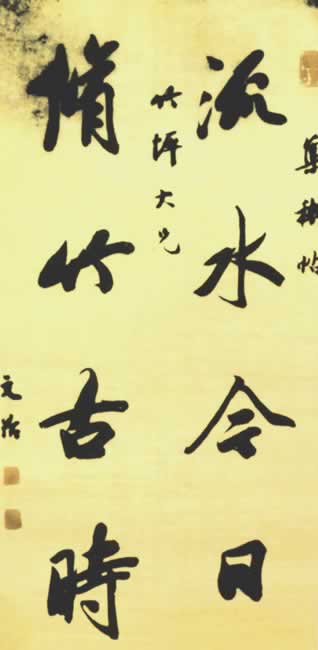 集禊帖
流水今日
竹坪大兄
脩竹古時
文治